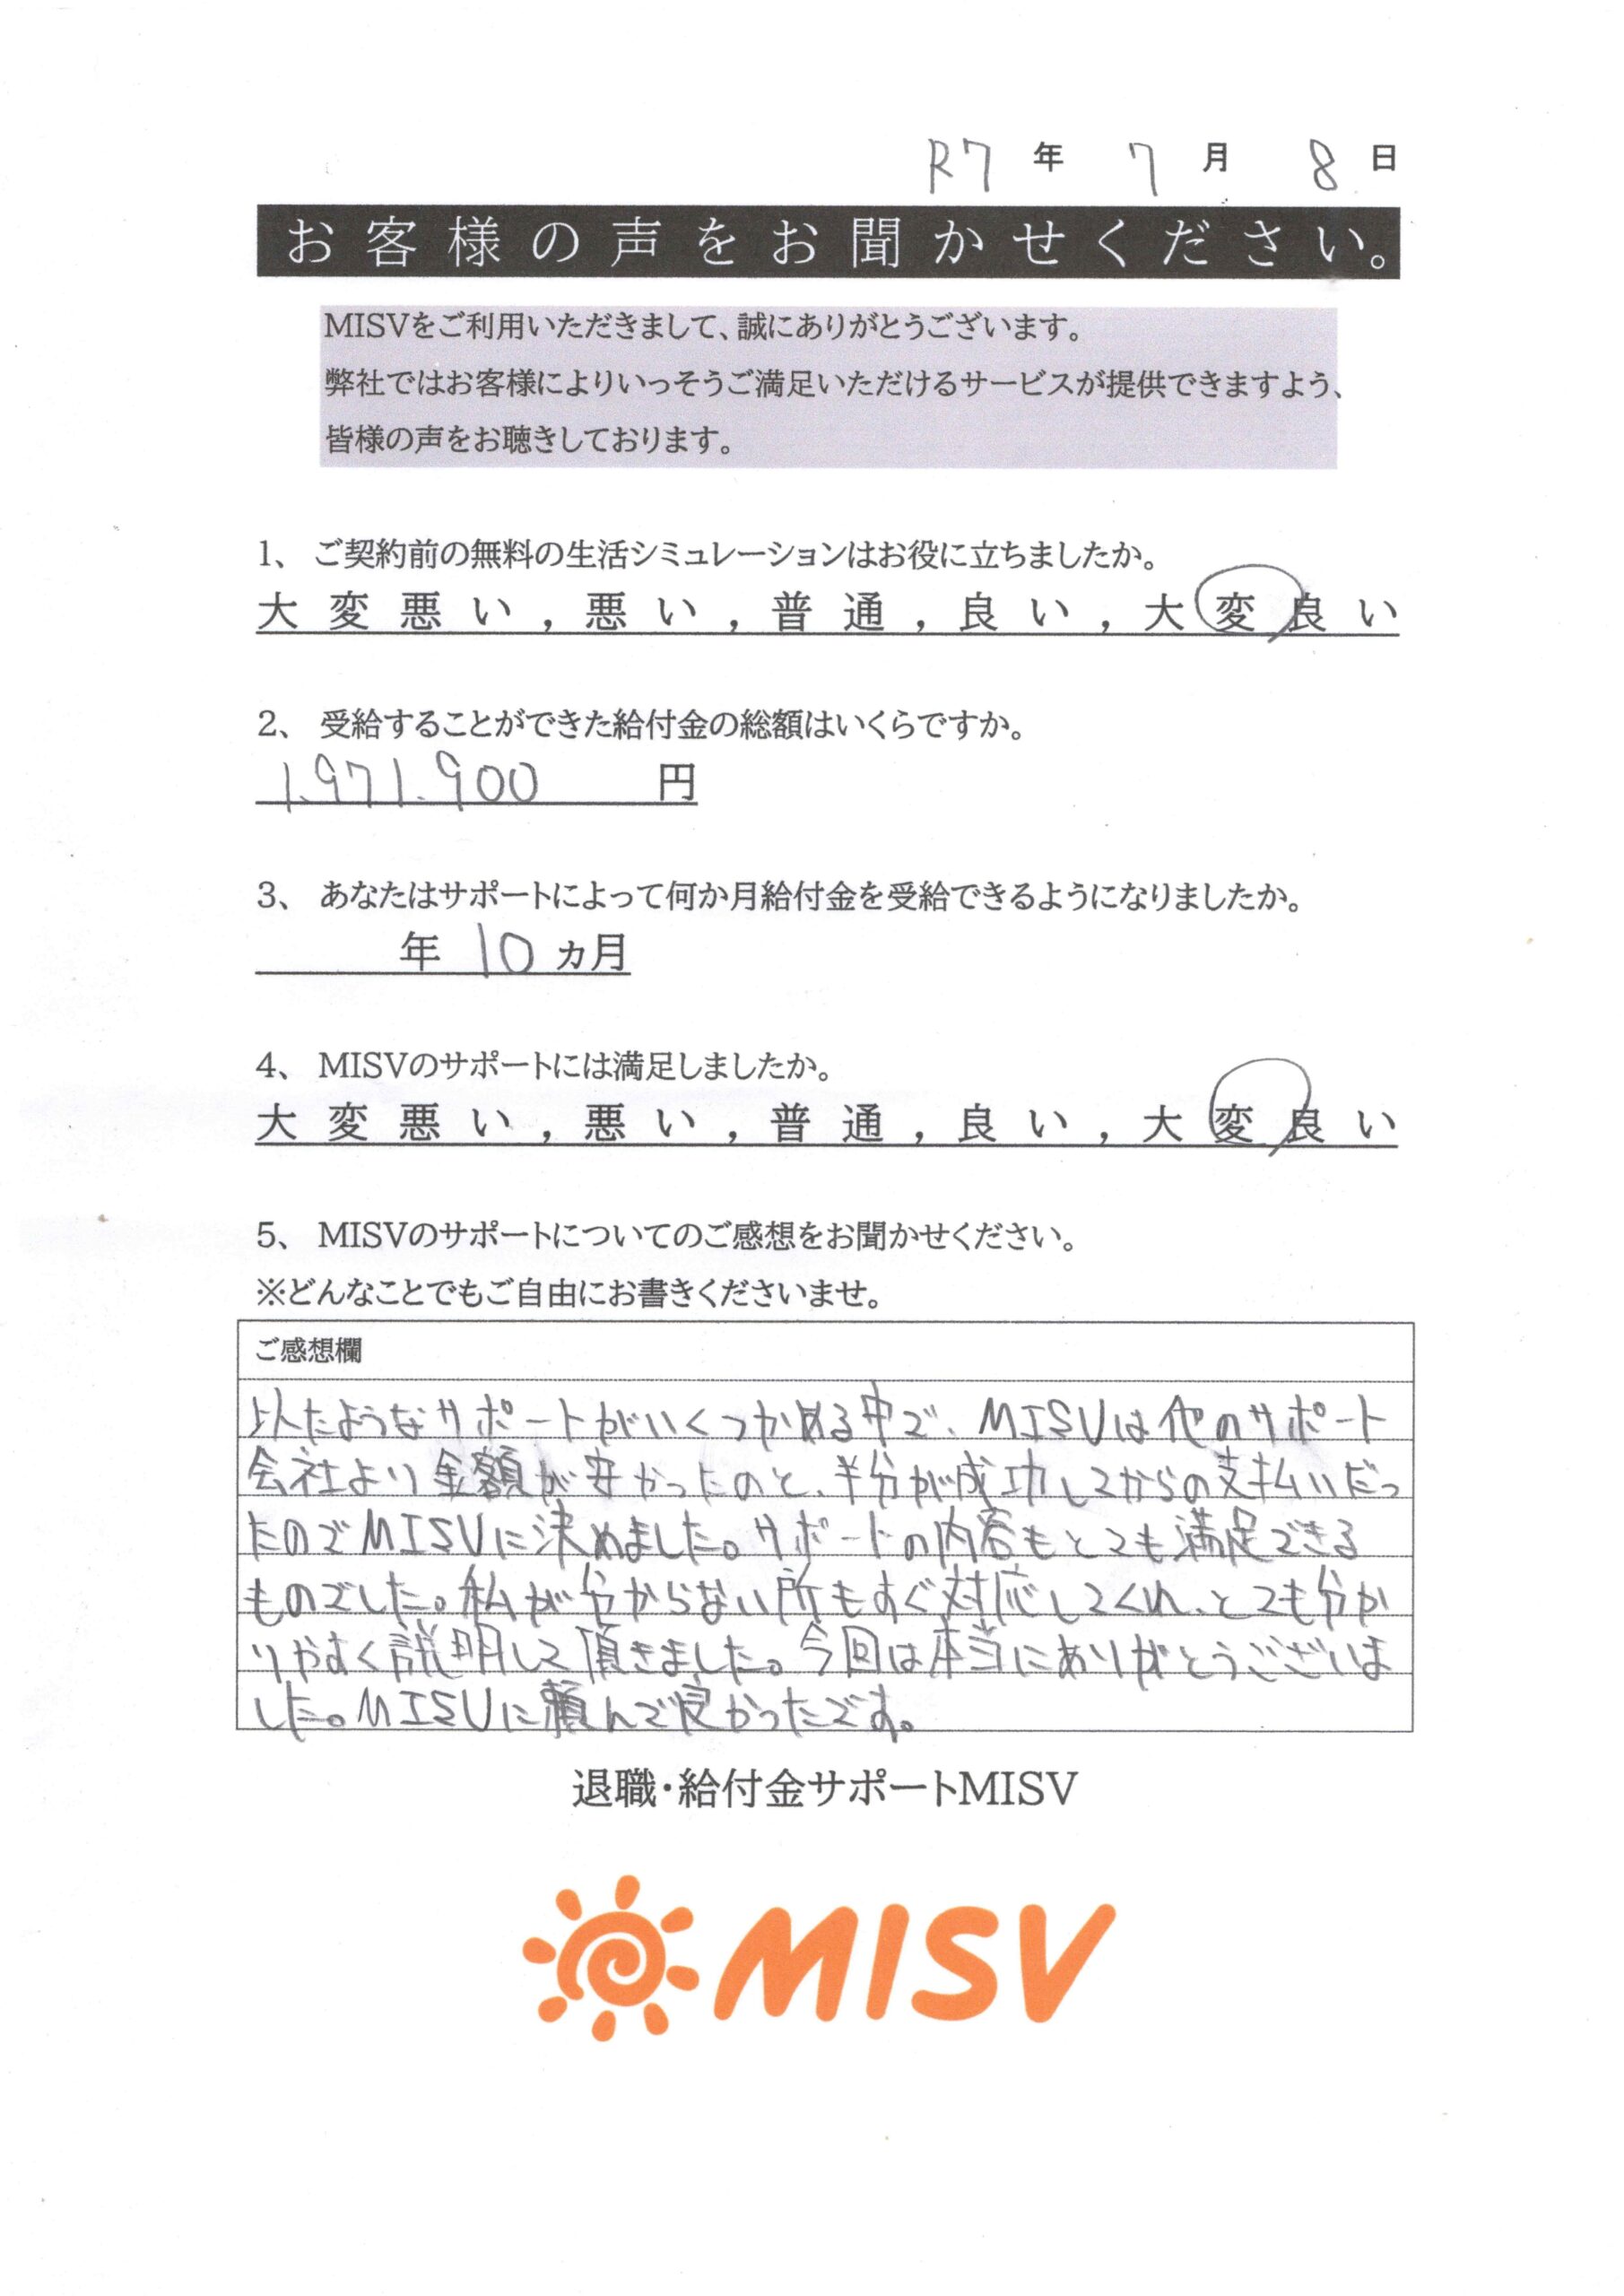 R7 年 7 月 8 日
お客様の声をお聞かせください。
MISVをご利用いただきまして、誠にありがとうございます。
弊社ではお客様によりいっそうご満足いただけるサービスが提供できますよう、
皆様の声をお聴きしております。
1、 ご契約前の無料の生活シミュレーションはお役に立ちましたか。
大変悪い , 悪い , 普通 , 良い , 大変良い
2、 受給することができた給付金の総額はいくらですか。
1.971.900 円
3、 あなたはサポートによって何か月給付金を受給できるようになりましたか。
年 10 ヵ月
4、 MISVのサポートには満足しましたか。
大変悪い , 悪い , 普通 , 良い , 大変良い
5、 MISVのサポートについてのご感想をお聞かせください。
※どんなことでもご自由にお書きくださいませ。
ご感想欄
以たようなサポートがいくつかある中で、MISVは他のサポート
会社より金額が安かったのと、半分が成功してからの支払いだっ
たのでMISVに決めました。サポートの内容もとても満足できる
ものでした。私が分からない所もすぐ対応してくれ、とても分か
りやすく説明して頂きました。今回は本当にありがとうございま
した。MISVに頼んで良かったです。
退職・給付金サポートMISV
MISV